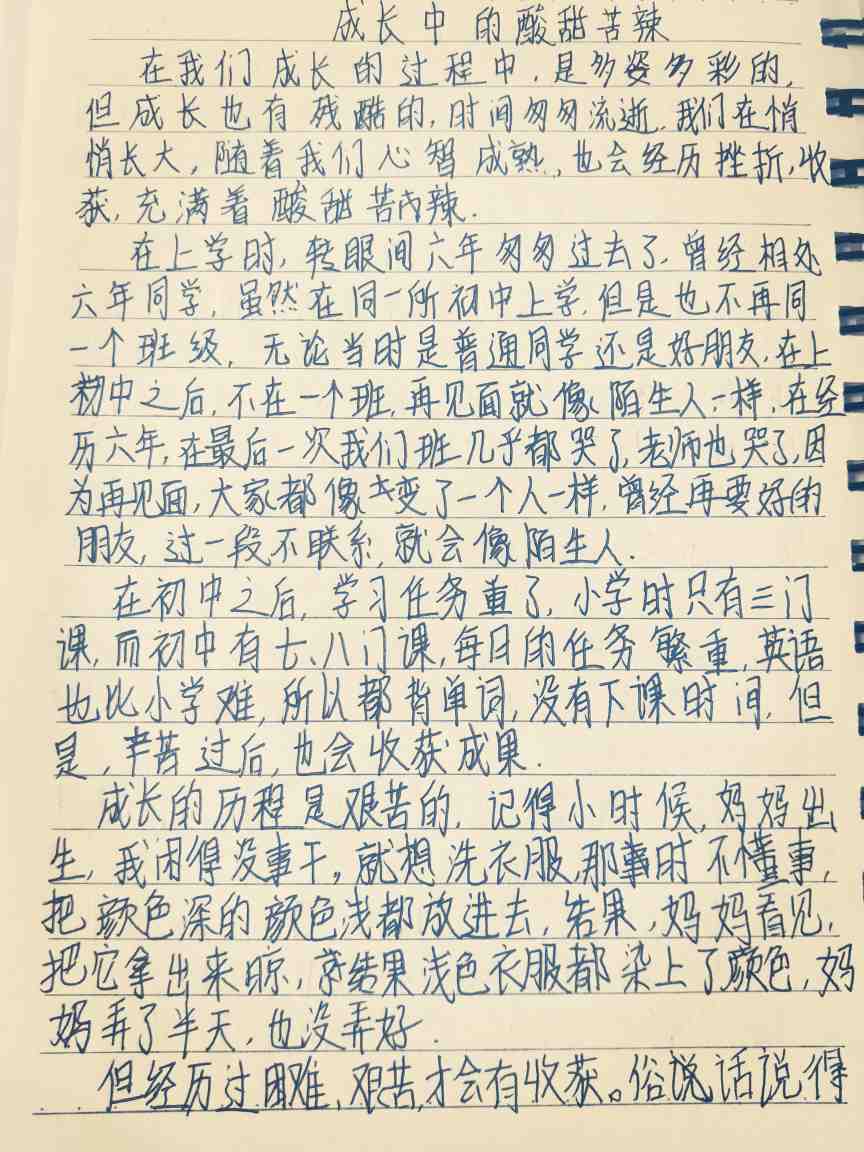 成长中的酸甜苦辣
在我们成长的过程中,是多姿多彩的,
但成长也有残酷的,时间匆匆流逝.我们在悄
悄长大,随着我们心智成熟,也会经历挫折,收
获,充满着酸甜苦辣.
在上学时,转眼间六年匆匆过去了,曾经相处
六年同学,虽然在同一所初中上学,但是也不再同
一个班级,无论当时是普通同学还是好朋友,在上
初中之后,不在一个班,再见面就像陌生人一样,在经
历六年,在最后一次我们班几乎都哭了,老师也哭了,因
为再见面,大家都像变了一个人一样,曾经再要好的
朋友,过一段不联系,就会像陌生人.
在初中之后,学习任务重了,小学时只有三门
课,而初中有七、八门课,每日的任务繁重,英语
也比小学难,所以都背单词,没有下课时间,但
是,辛苦过后,也会收获成果.
成长的历程是艰苦的,记得小时候,妈妈出
生,我闲得没事干,就想洗衣服,那事时不懂事,
把颜色深的颜色浅都放进去,结果,妈妈看见,
把它拿出来晾,结果浅色衣服都染上了颜色,妈
妈弄了半天,也没弄好.
但经历过困难,艰苦,才会有收获。俗说话说得